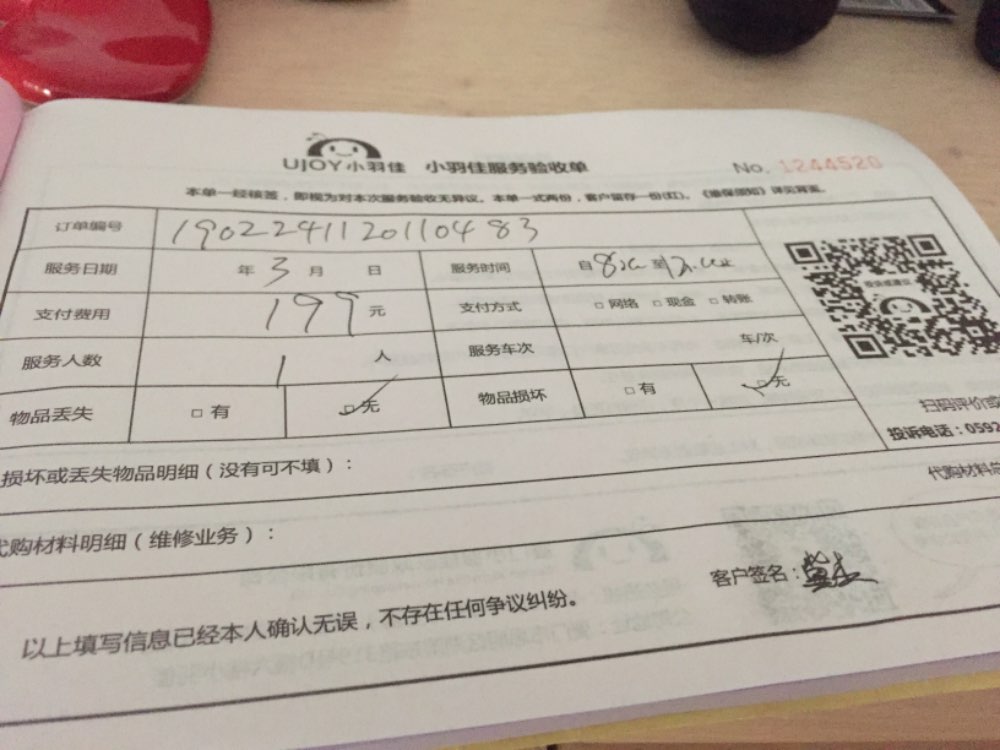 UJOY小羽佳 小羽佳服务验收单 No. 1244520
本单一经核签，即视为对本次服务验收无异议。本单一式两份，客户留存一份(红)。《维保须知》详见背面。
订单编号 19022411201104483
服务日期 年 3 月 日 服务时间 自 至
支付费用 199 元 支付方式 □ 网络 □ 现金 □ 转账
服务人数 1 人 服务车次 车/次
物品丢失 □ 有 □ 无 物品损坏 □ 有 □ 无
扫码评价或
投诉电话：0592
损坏或丢失物品明细（没有可不填）：
代购材料总
代购材料明细（维修业务）：
客户签名：
以上填写信息已经本人确认无误，不存在任何争议纠纷。